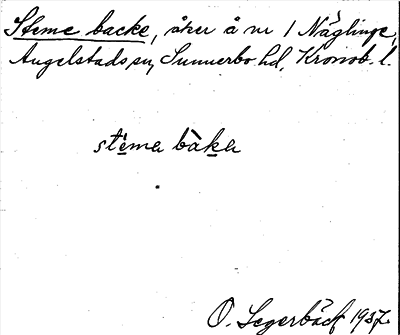 Steme backe, åker å nr 1 Näglinge,
Angelstads sn, Sunnerbo hd, Kronob. l.
stèma bàka
O. Segerbäck 1937.